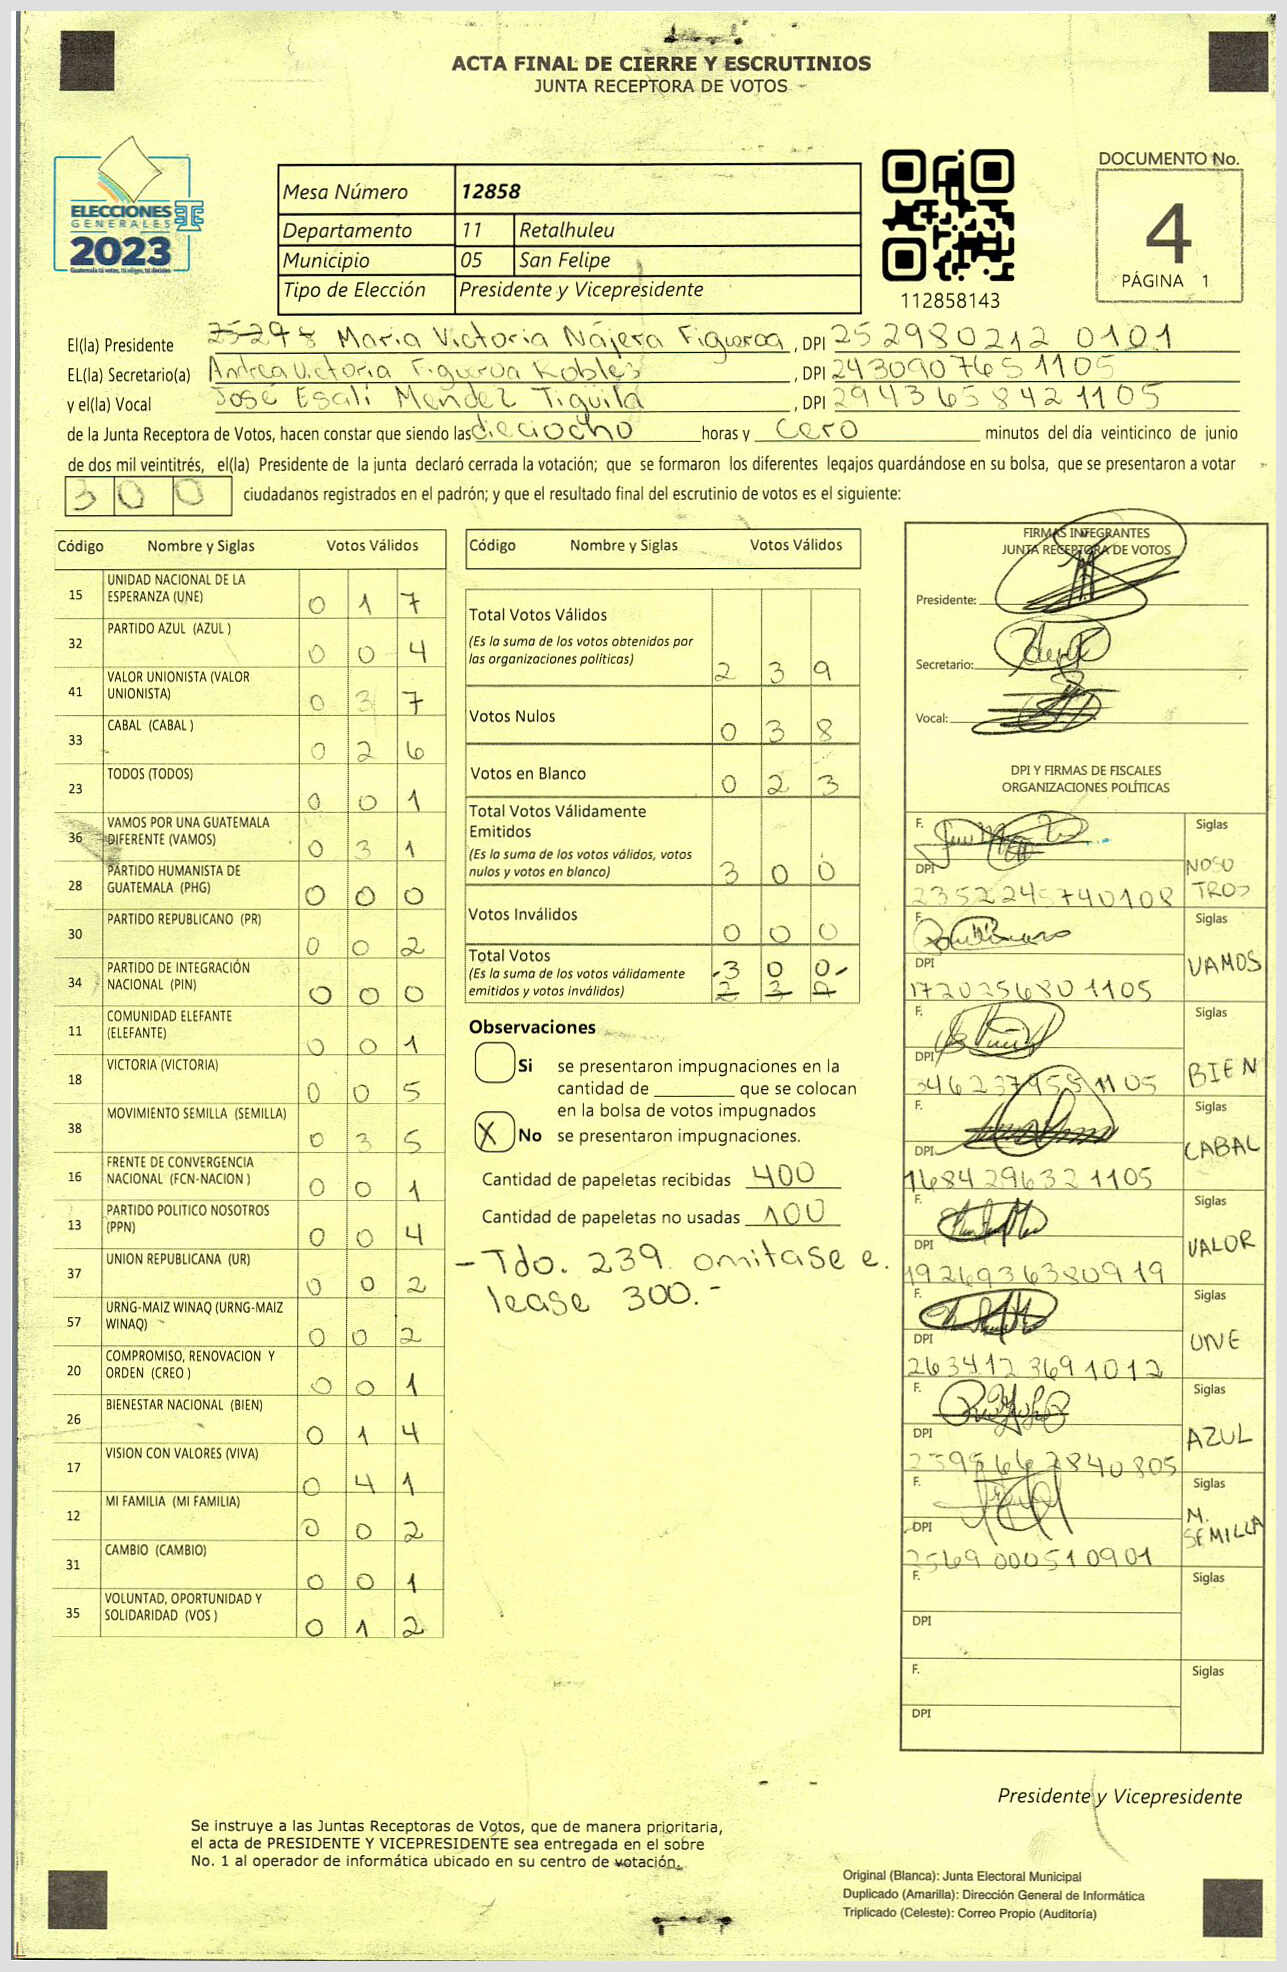 ACTA FINAL DE CIERRE Y ESCRUTINIOS
JUNTA RECEPTORA DE VOTOS
ELECCIONES
GENERALES
2023
Guatemala tú votas, tú eliges, tú decides
Mesa Número 12858
Departamento 11 Retalhuleu
Municipio 05 San Felipe
Tipo de Elección Presidente y Vicepresidente
112858143
DOCUMENTO No.
4
PÁGINA 1
El(la) Presidente Maria Victoria Nájera Figueroa, DPI 252980212 0101
EL(la) Secretario(a) Andrea Victoria Figueroa Robles, DPI 2430907651105
y el(la) Vocal José Esali Mendez Tiguilá, DPI 2943658421105
de la Junta Receptora de Votos, hacen constar que siendo las dieciocho horas y cero minutos del día veinticinco de junio
de dos mil veintitrés, el(la) Presidente de la junta declaró cerrada la votación; que se formaron los diferentes legajos guardándose en su bolsa, que se presentaron a votar
300 ciudadanos registrados en el padrón; y que el resultado final del escrutinio de votos es el siguiente:
Código Nombre y Siglas Votos Válidos
15 UNIDAD NACIONAL DE LA ESPERANZA (UNE) 0 1 7
32 PARTIDO AZUL (AZUL ) 0 0 4
41 VALOR UNIONISTA (VALOR UNIONISTA) 0 3 7
33 CABAL (CABAL ) 0 2 6
23 TODOS (TODOS) 0 0 1
36 VAMOS POR UNA GUATEMALA DIFERENTE (VAMOS) 0 3 1
28 PARTIDO HUMANISTA DE GUATEMALA (PHG) 0 0 0
30 PARTIDO REPUBLICANO (PR) 0 0 2
34 PARTIDO DE INTEGRACIÓN NACIONAL (PIN) 0 0 0
11 COMUNIDAD ELEFANTE (ELEFANTE) 0 0 1
18 VICTORIA (VICTORIA) 0 0 5
38 MOVIMIENTO SEMILLA (SEMILLA) 0 3 5
16 FRENTE DE CONVERGENCIA NACIONAL (FCN-NACION ) 0 0 1
13 PARTIDO POLITICO NOSOTROS (PPN) 0 0 4
37 UNION REPUBLICANA (UR) 0 0 2
57 URNG-MAIZ WINAQ (URNG-MAIZ WINAQ) 0 0 2
20 COMPROMISO, RENOVACION Y ORDEN (CREO ) 0 0 1
26 BIENESTAR NACIONAL (BIEN) 0 1 4
17 VISION CON VALORES (VIVA) 0 4 1
12 MI FAMILIA (MI FAMILIA) 0 0 2
31 CAMBIO (CAMBIO) 0 0 1
35 VOLUNTAD, OPORTUNIDAD Y SOLIDARIDAD (VOS ) 0 1 2
Código Nombre y Siglas Votos Válidos
Total Votos Válidos
(Es la suma de los votos obtenidos por
las organizaciones políticas) 2 3 9
Votos Nulos 0 3 8
Votos en Blanco 0 2 3
Total Votos Válidamente
Emitidos
(Es la suma de los votos válidos, votos
nulos y votos en blanco) 3 0 0
Votos Inválidos 0 0 0
Total Votos
(Es la suma de los votos válidamente
emitidos y votos inválidos) -3 0 0-
2 3 9
Observaciones
Si se presentaron impugnaciones en la
cantidad de ________ que se colocan
en la bolsa de votos impugnados
X No se presentaron impugnaciones.
Cantidad de papeletas recibidas 400
Cantidad de papeletas no usadas 100
- Tdo. 239. omitase e.
lease 300.-
FIRMAS INTEGRANTES
JUNTA RECEPTORA DE VOTOS
Presidente:
Secretario:
Vocal:
DPI Y FIRMAS DE FISCALES
ORGANIZACIONES POLÍTICAS
F. Siglas
DPI NOSO
2352245740108 TROS
F. Siglas
DPI VAMOS
1720256801105
F. Siglas
DPI BIEN
3462379551105
F. Siglas
DPI CABAL
1684296321105
F. Siglas
DPI VALOR
1926936380919
F. Siglas
DPI UNE
2634123691012
F. Siglas
DPI AZUL
2395662840805
F. Siglas
DPI M.
SEMILLA
2569000510901
F. Siglas
DPI
F. Siglas
DPI
Presidente y Vicepresidente
Se instruye a las Juntas Receptoras de Votos, que de manera prioritaria,
el acta de PRESIDENTE Y VICEPRESIDENTE sea entregada en el sobre
No. 1 al operador de informática ubicado en su centro de votación.
Original (Blanca): Junta Electoral Municipal
Duplicado (Amarilla): Dirección General de Informática
Triplicado (Celeste): Correo Propio (Auditoría)